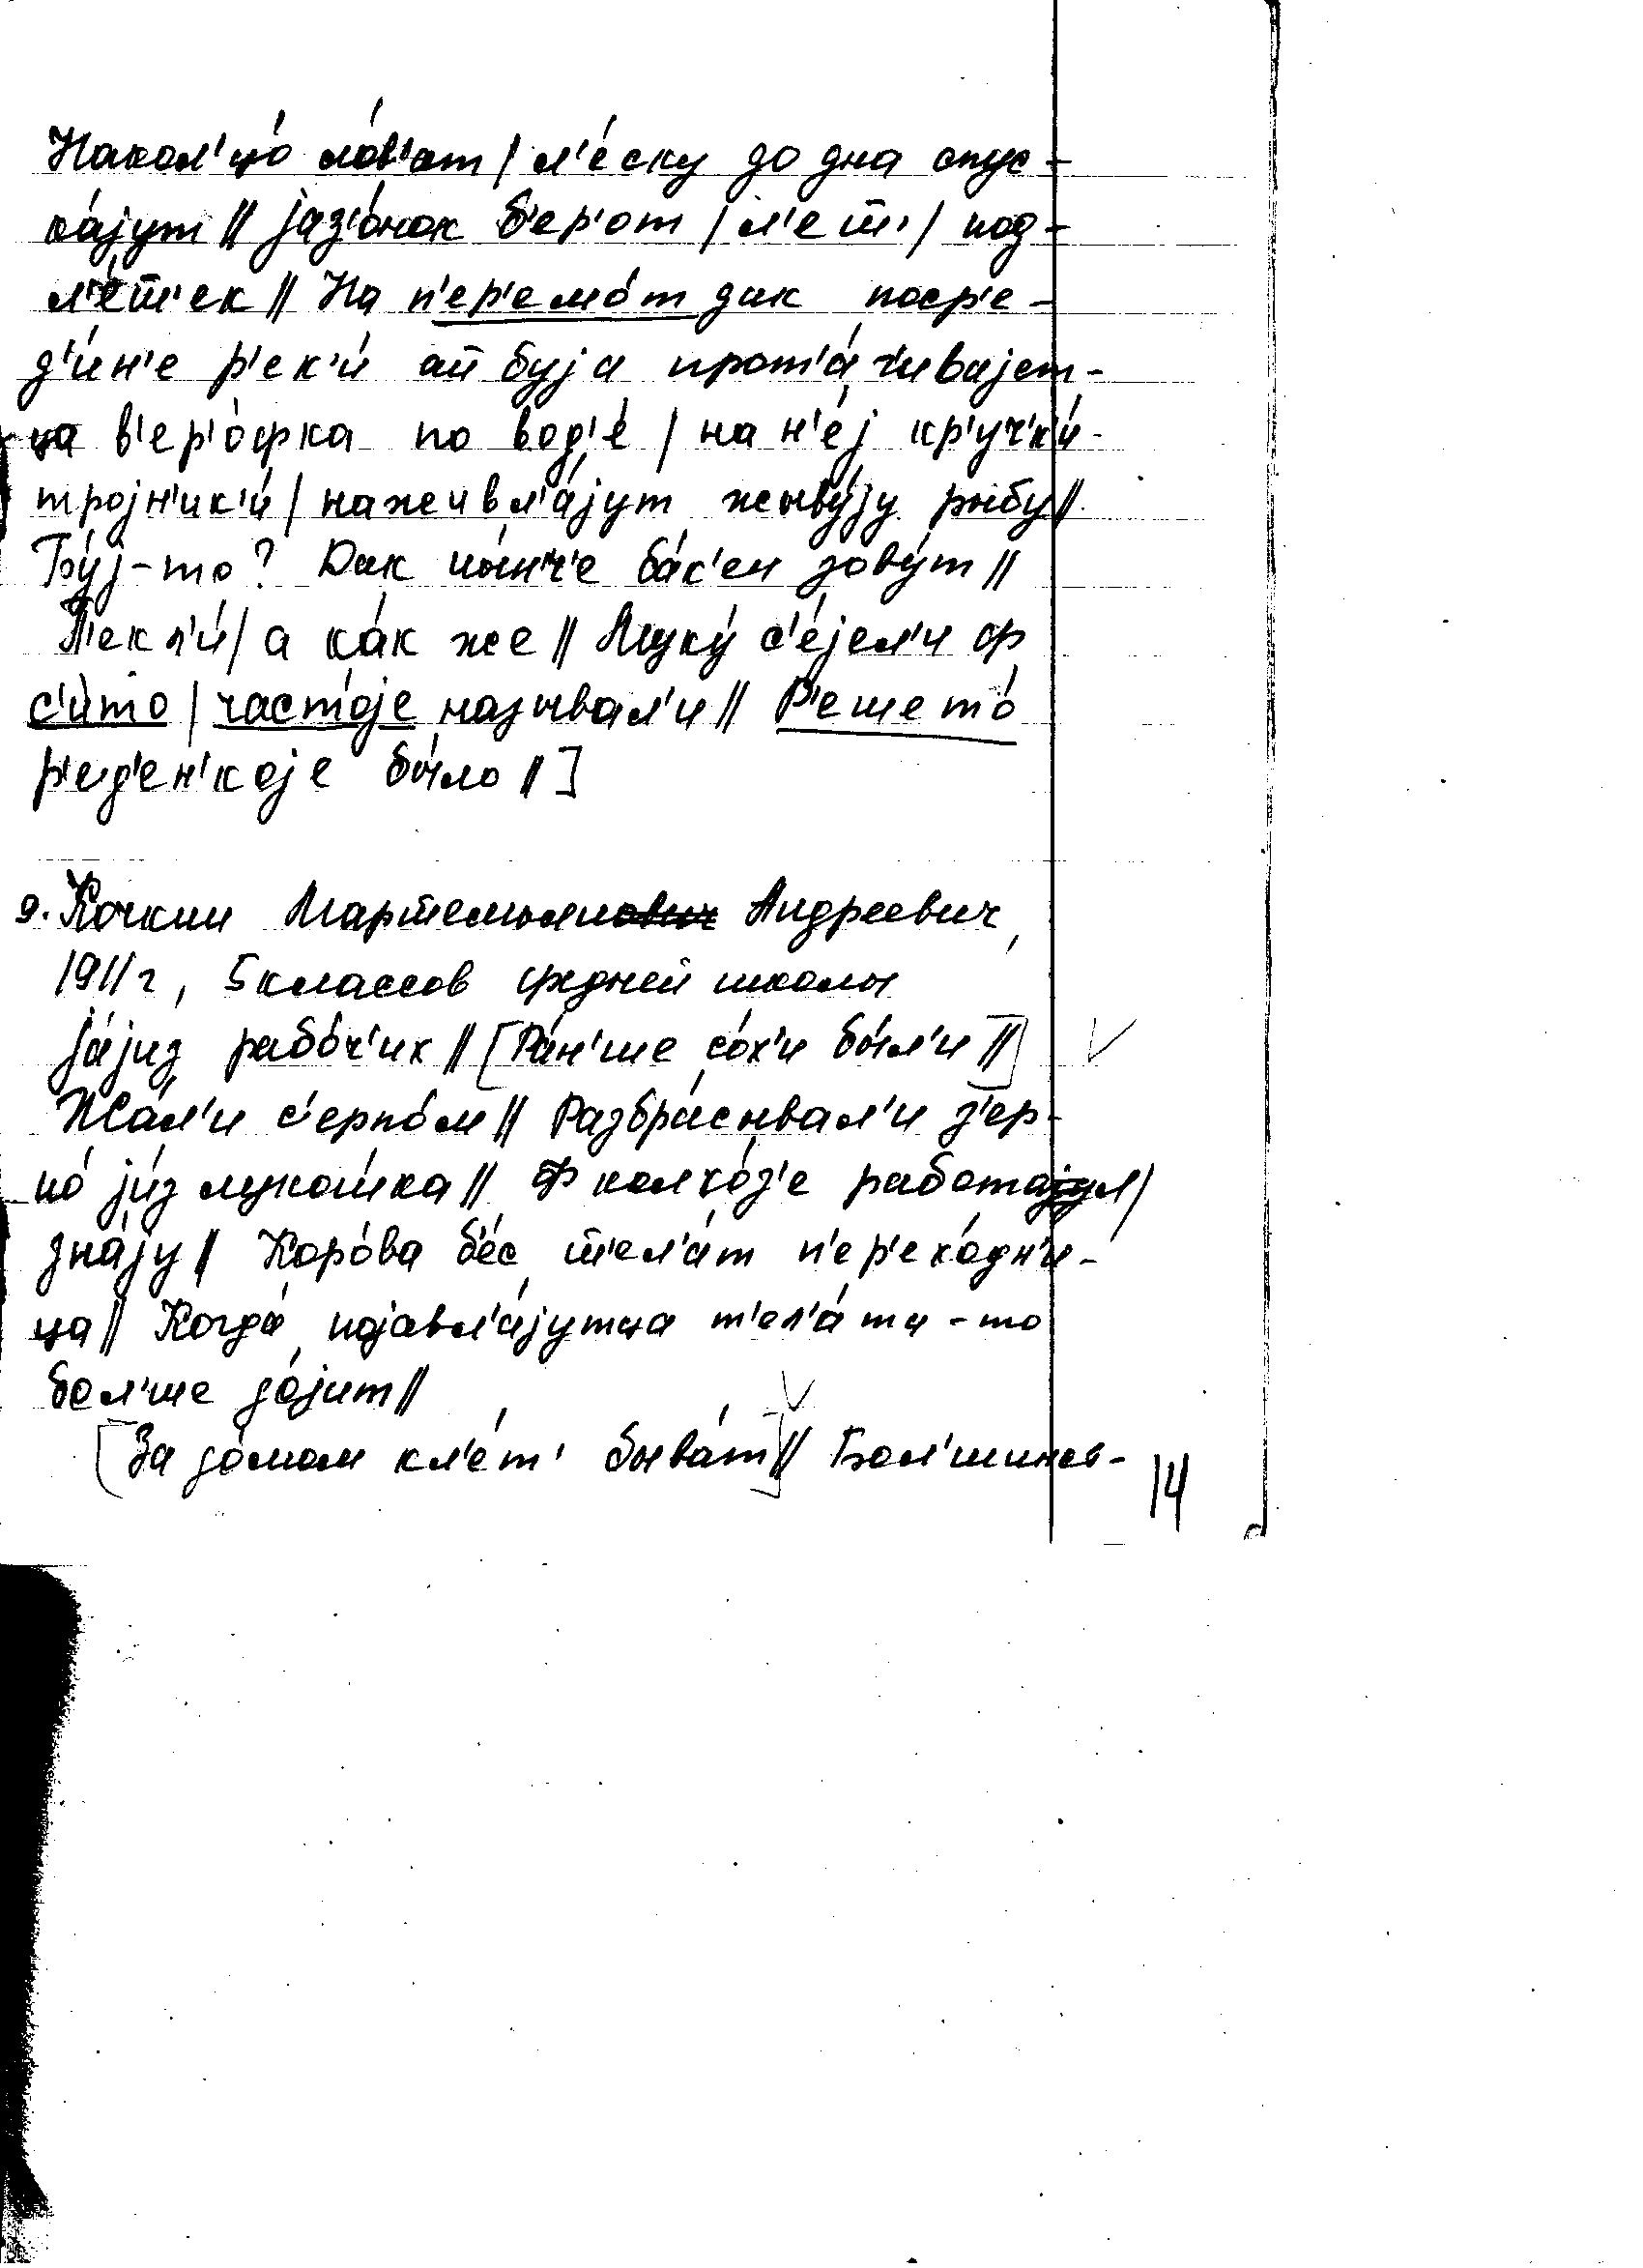 Накол'цо́ ло́в'ат / л'е́ску до дна опус-
ка́јут // јаз'о́нок б'ер'от / л'ет' / под-
л'е́т'ек // На п'ер'емо́т дак поср'е-
д'и́н'е р'ек'и́ от буја прот'а́г'ивајет-
ца в'ер'о́фка по вод'е́ / на н'е́ј кр'уч'к'и́-
тројн'ик'и́ / наживл'а́јут жыву́ју рыбу //
Бу́ј-то? Дак ны́нч'е ба́к'ен зову́т //
П'екл'и́ / а ка́к же // Муку́ с'е́јел'и ф
с'и́то / частоје называл'и // Р'ешето́
р'ед'ен'које бы́ло // ]
9. Кочкин Мартемьянович Андреевич,
1911 г, 5 классов средней школы
Ја́јиз рабо́ч'их // [Ра́н'ше со́х'и бы́л'и //] V
Жа́л'и с'ерпо́м // Разбра́сывал'и з'ер-
но́ ји́з лукошка // Ф колхо́з'е работајул /
зна́ју // Коро́ва б'е́с т'ел'а́т п'ер'ехо́дн'и-
ца // Когда́ појавл'а́јутца т'ел'а́ти-то
бол'ше до́јит //
[За до́мом кл'е́т' быва́т] // V Бол'шинс-
14